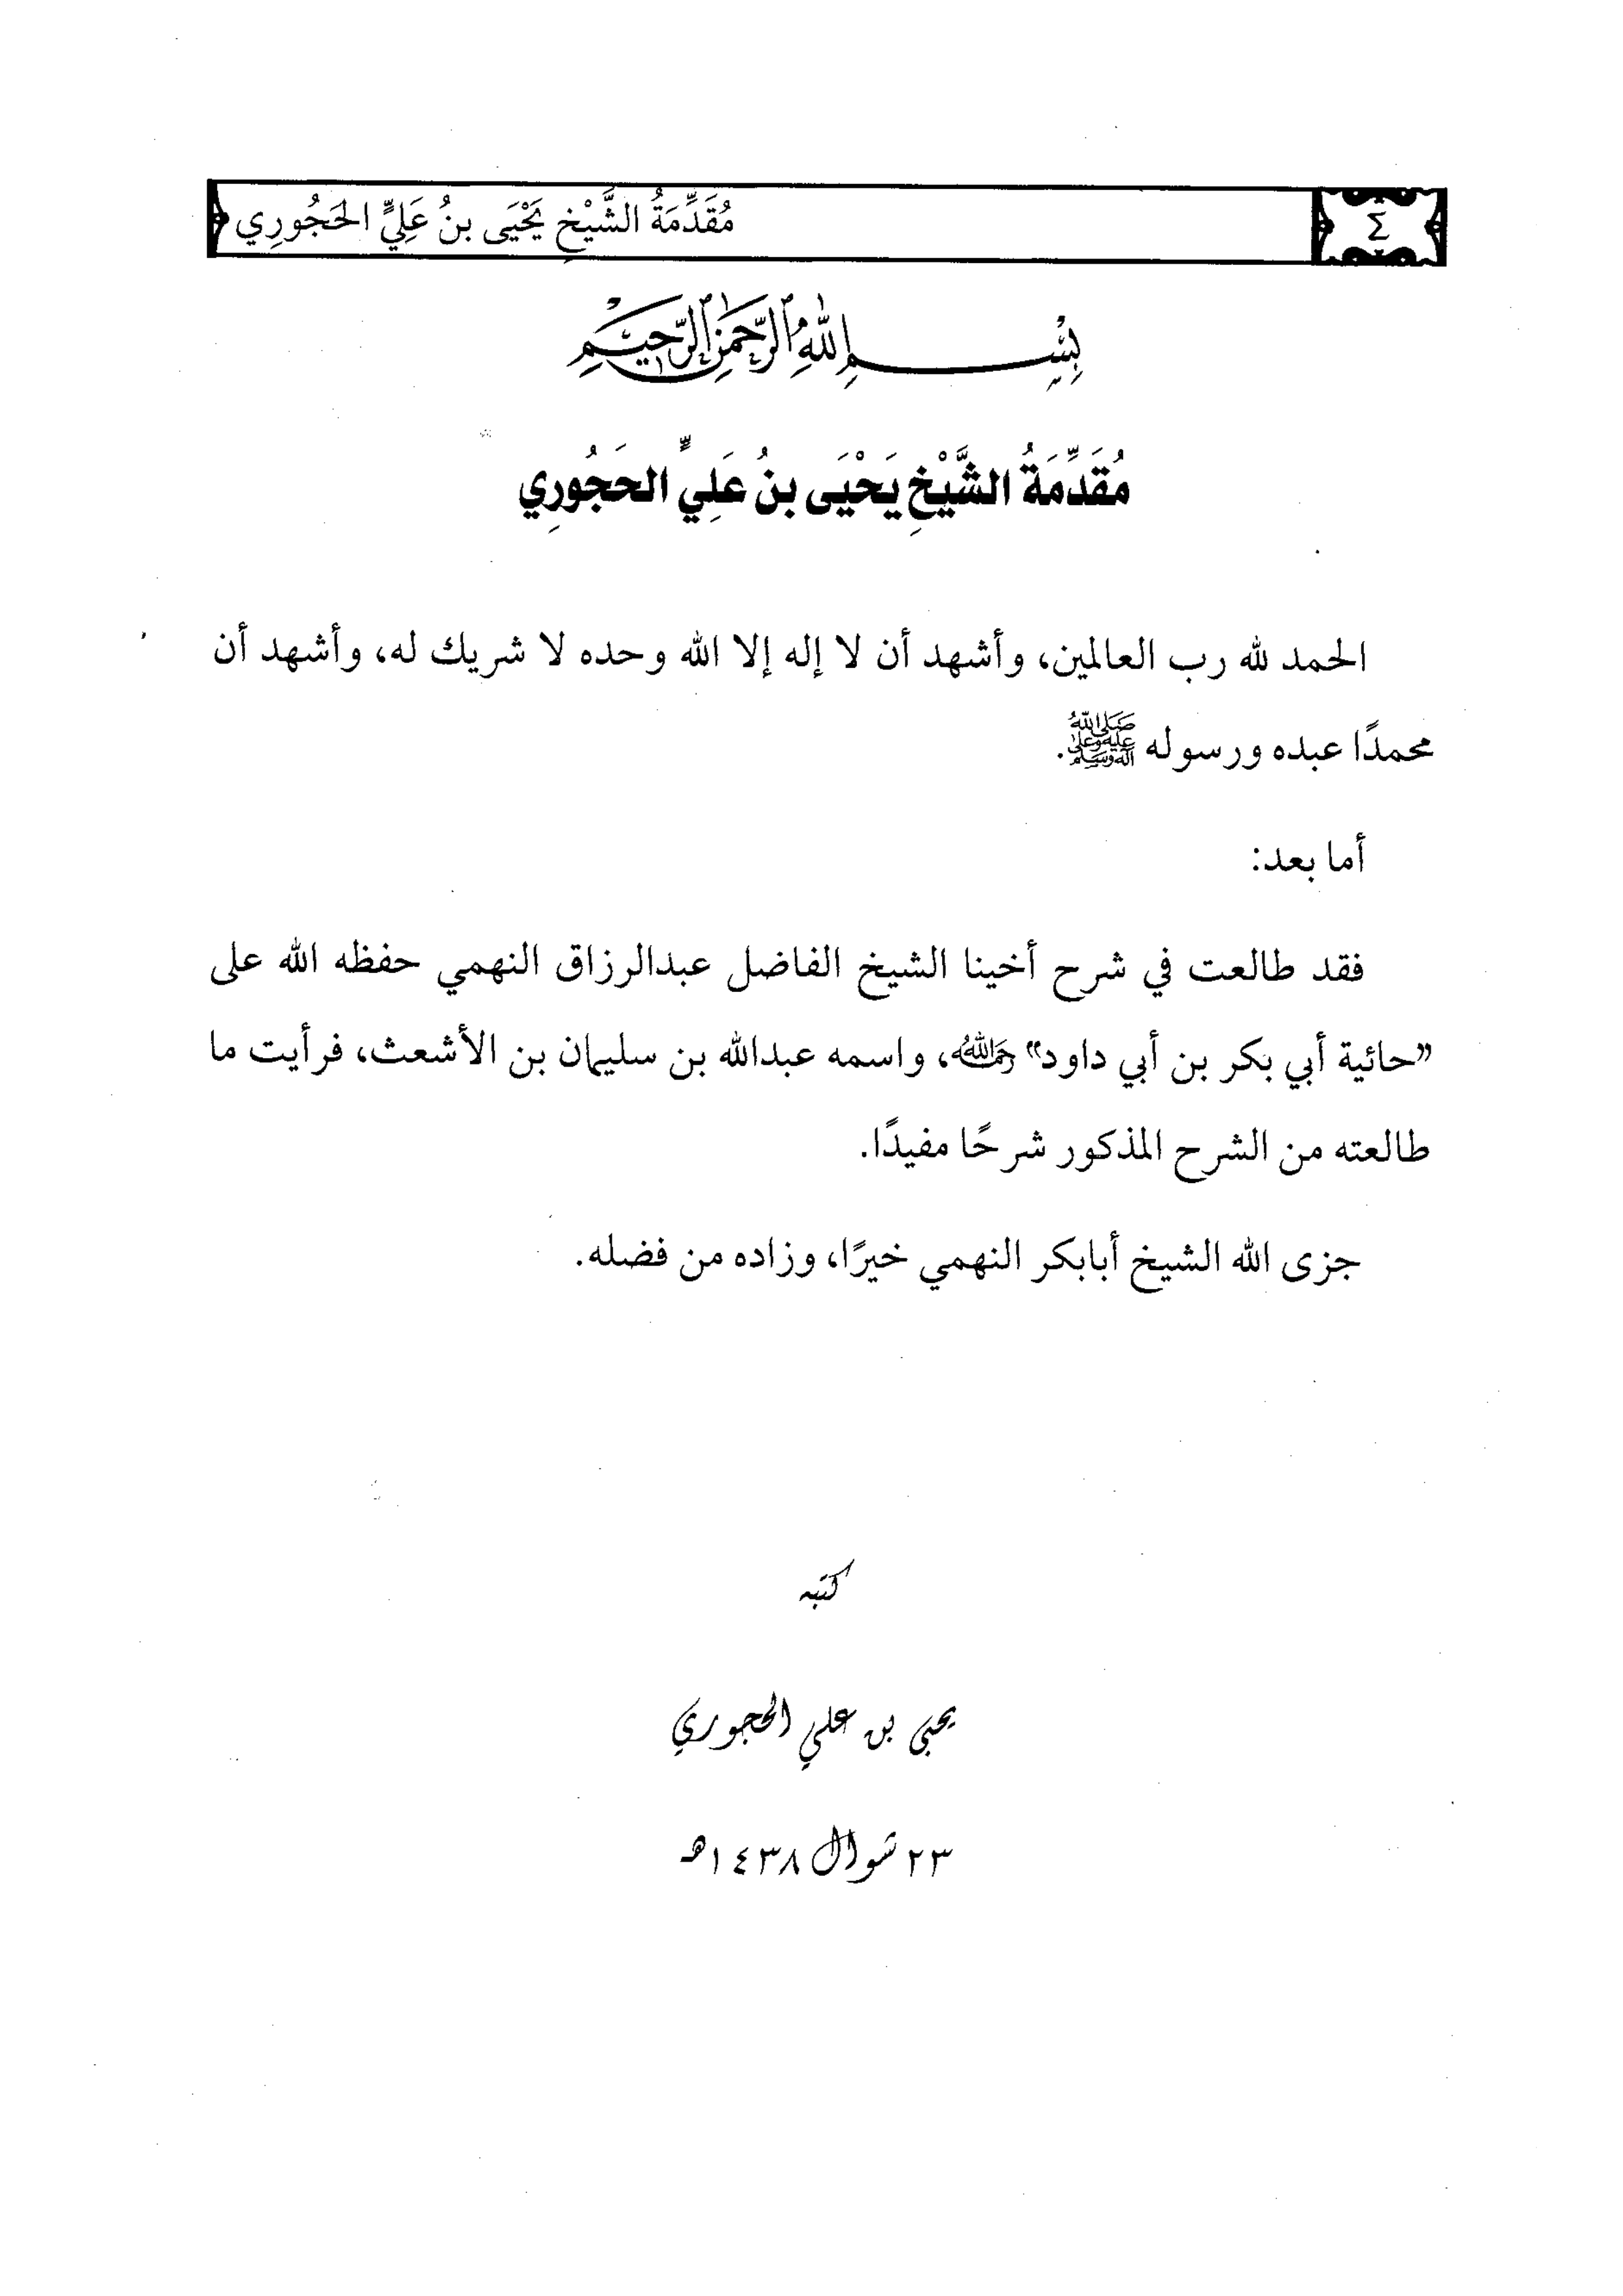 ٤
مُقَدِّمَةُ الشَّيْخِ يَحْيَى بنُ عَلِيٍّ الحَجُورِي
بِسْمِ اللَّهِ الرَّحْمَنِ الرَّحِيمِ
مُقَدِّمَةُ الشَّيْخِ يَحْيَى بنُ عَلِيٍّ الحَجُورِي
الحمد لله رب العالمين، وأشهد أن لا إله إلا الله وحده لا شريك له، وأشهد أن
محمدًا عبده ورسوله صَلَّى اللهُ عَلَيْهِ وَعَلَى آلِهِ وَسَلَّمَ.
أما بعد:
فقد طالعت في شرح أخينا الشيخ الفاضل عبدالرزاق النهمي حفظه الله على
«حائية أبي بكر بن أبي داود» رَحِمَهُ اللهُ، واسمه عبدالله بن سليمان بن الأشعث، فرأيت ما
طالعته من الشرح المذكور شرحًا مفيدًا.
جزى الله الشيخ أبابكر النهمي خيرًا، وزاده من فضله.
كتبه
يحيى بن علي الحجوري
٢٣ شوال ١٤٣٨هـ